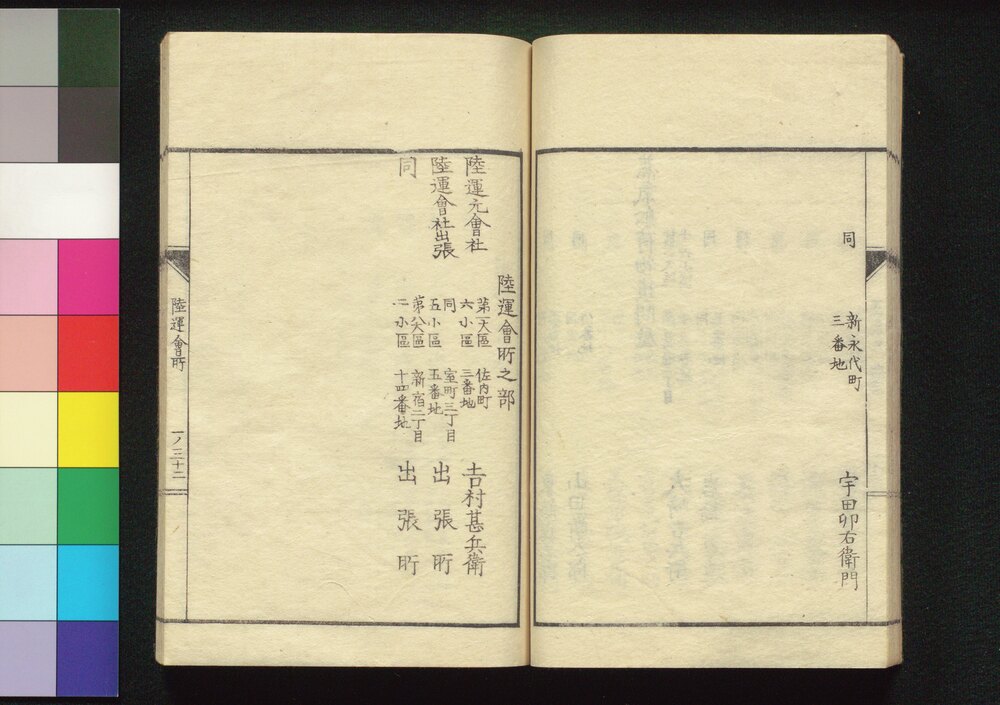 同
新永代町
三番地
宇田卯右衛門
陸運會所之部
陸運元會社
第一大區
六小區
佐内町
三番地
吉村甚兵衛
陸運會社出張
同
五小區
室町三丁目
五番地
出張所
同
第八大區
二小區
新宿二丁目
十四番地
出張所
陸運會所
一ノ三十二